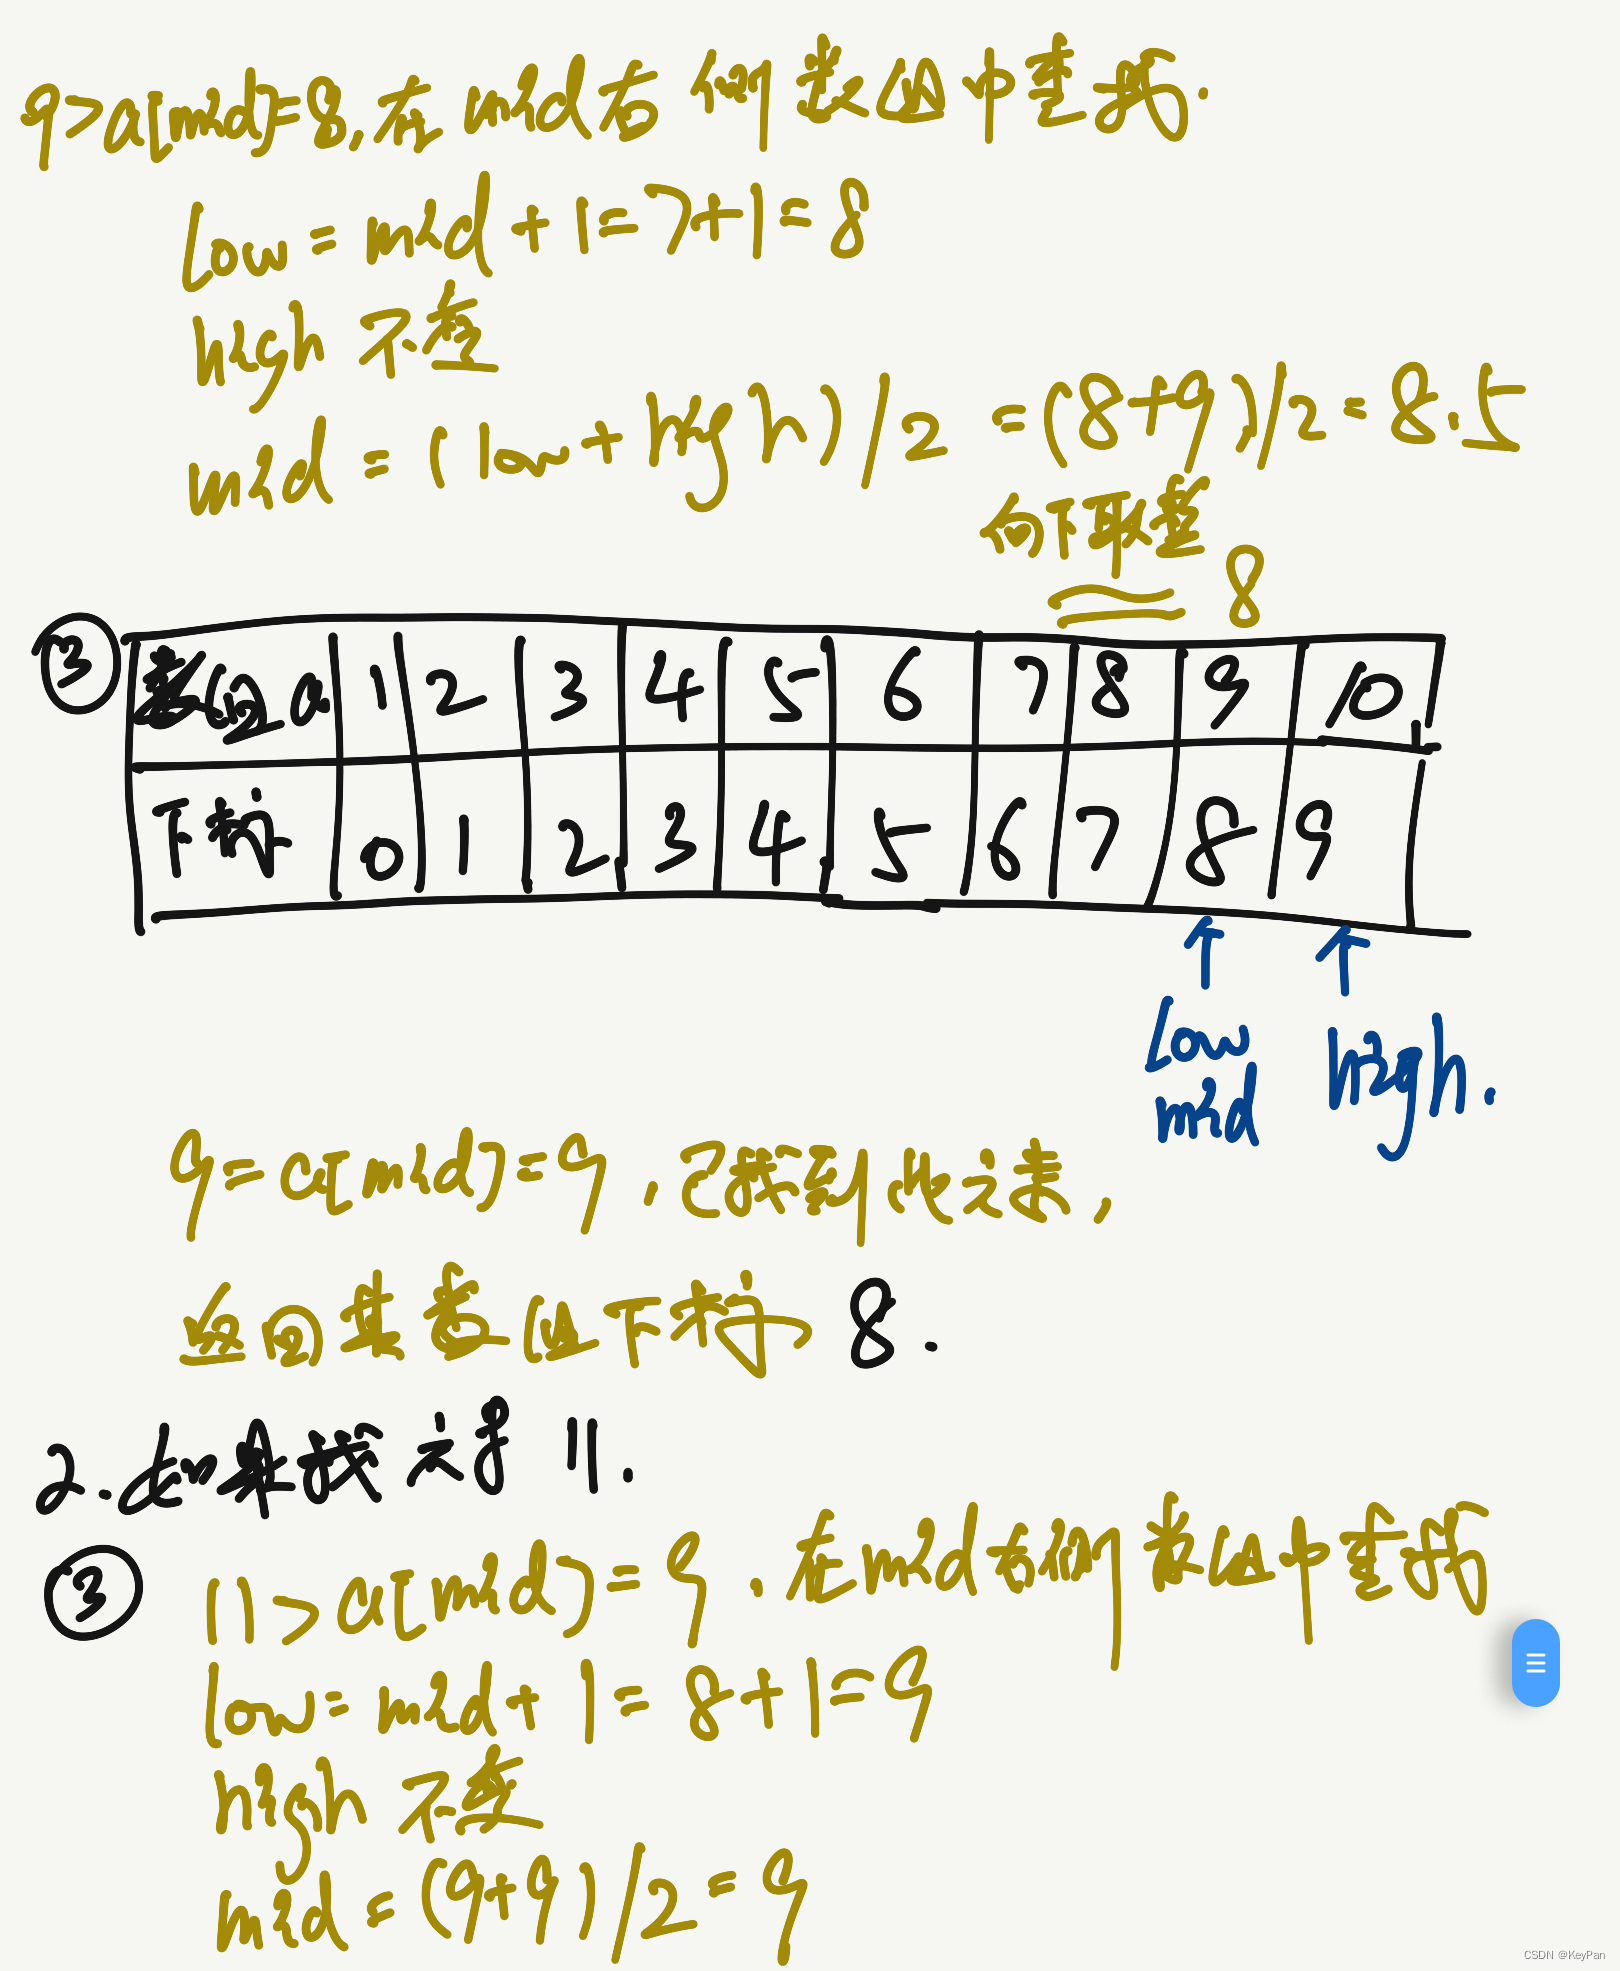 9>a[mid]=8,在mid右侧数组中查找.
low=mid+1=7+1=8
high 不变
mid=(low+high)/2=(8+9)/2=8.5
向下取整
8
③ 数组a 1 2 3 4 5 6 7 8 9 10
下标 0 1 2 3 4 5 6 7 8 9
low high.
mid
9=a[mid]=9.已找到此元素,
返回其数组下标 8.
2.如果找元素 11.
③ 11>a[mid]=9.在mid右侧数组中查找
low=mid+1=8+1=9
high 不变
mid=(9+9)/2=9
CSDN @KeyPan